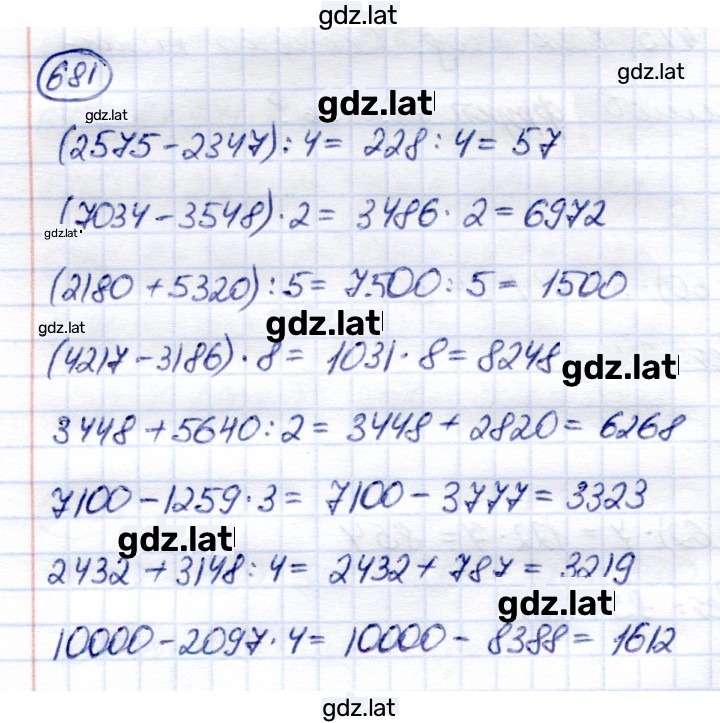 gdz.lat
681
gdz.lat
gdz.lat
gdz.lat
(2575-2347):4= 228:4= 57
(7034-3548)·2= 3486·2=6972
gdz.lat
(2180+5320):5= 7500:5= 1500
gdz.lat
gdz.lat
(4217-3186)·8= 1031·8=8248
gdz.lat
3448+5640:2= 3448+2820=6268
7100-1259·3= 7100-3777=3323
gdz.lat
2432+3148:4= 2432+787=3219
gdz.lat
10000-2097·4= 10000-8388=1612
gdz.lat